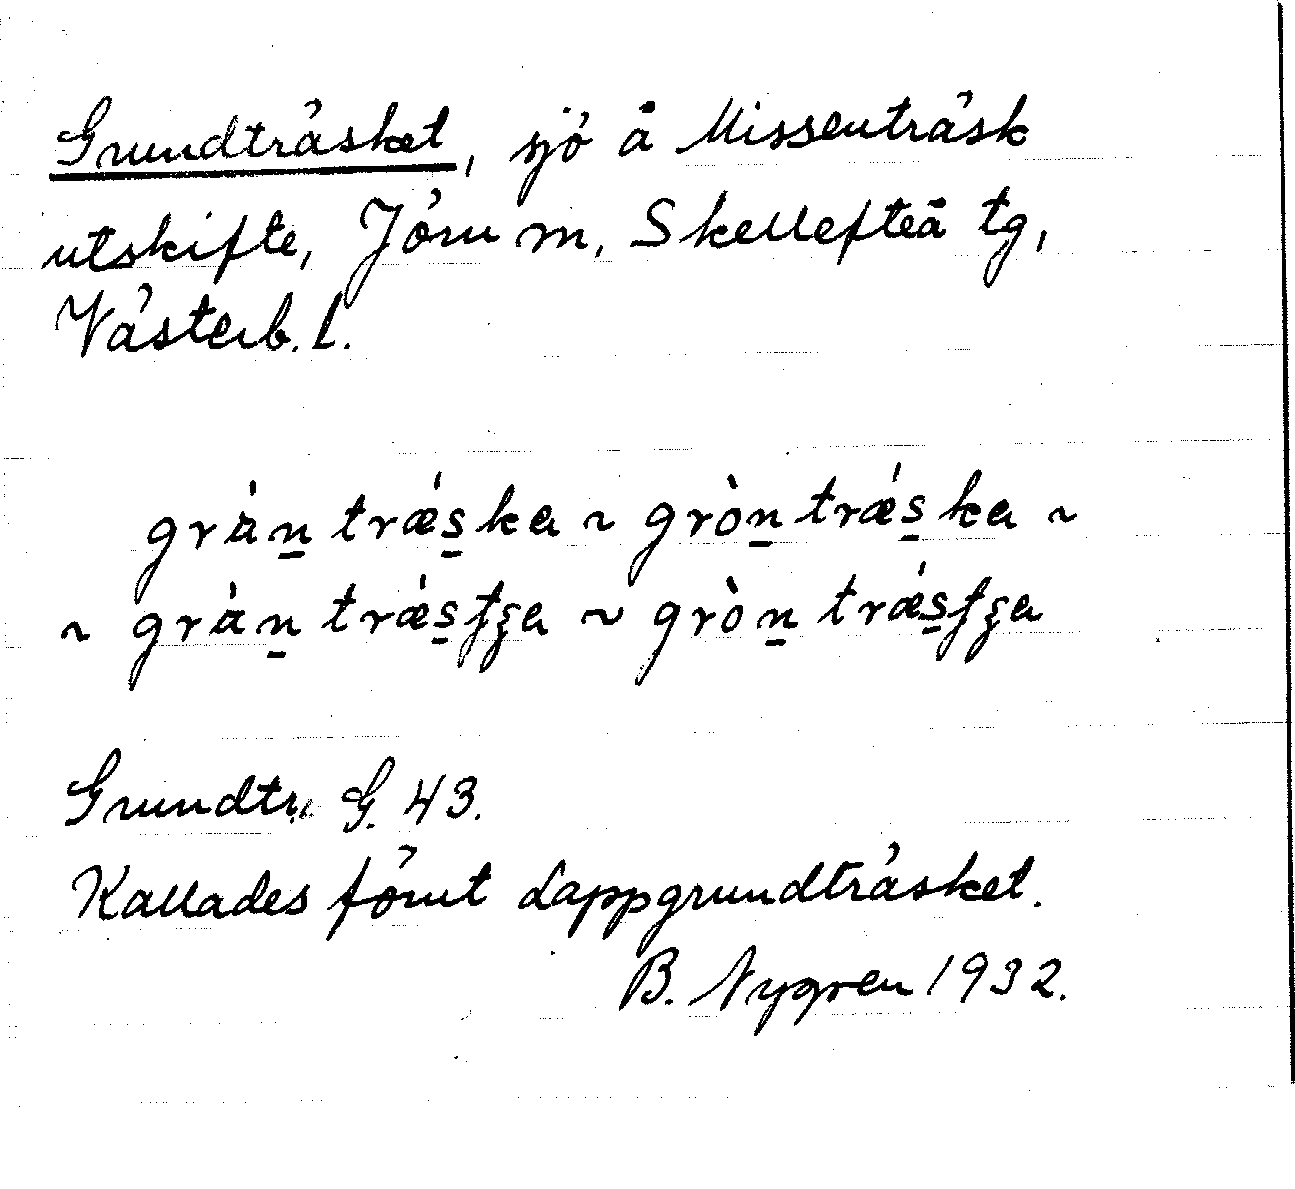 Grundträsket, sjö å Missenträsk
utskifte, Jörn m, Skellefteå tg,
Västerb. l.
grànt træ̀ska ~ gròn træ̀ska ~
~ gràn træstʃa ~ gròn træstʃa
Grundtr. G. 43.
Kallades förut Lappgrundträsket.
B. Nygren 1932.